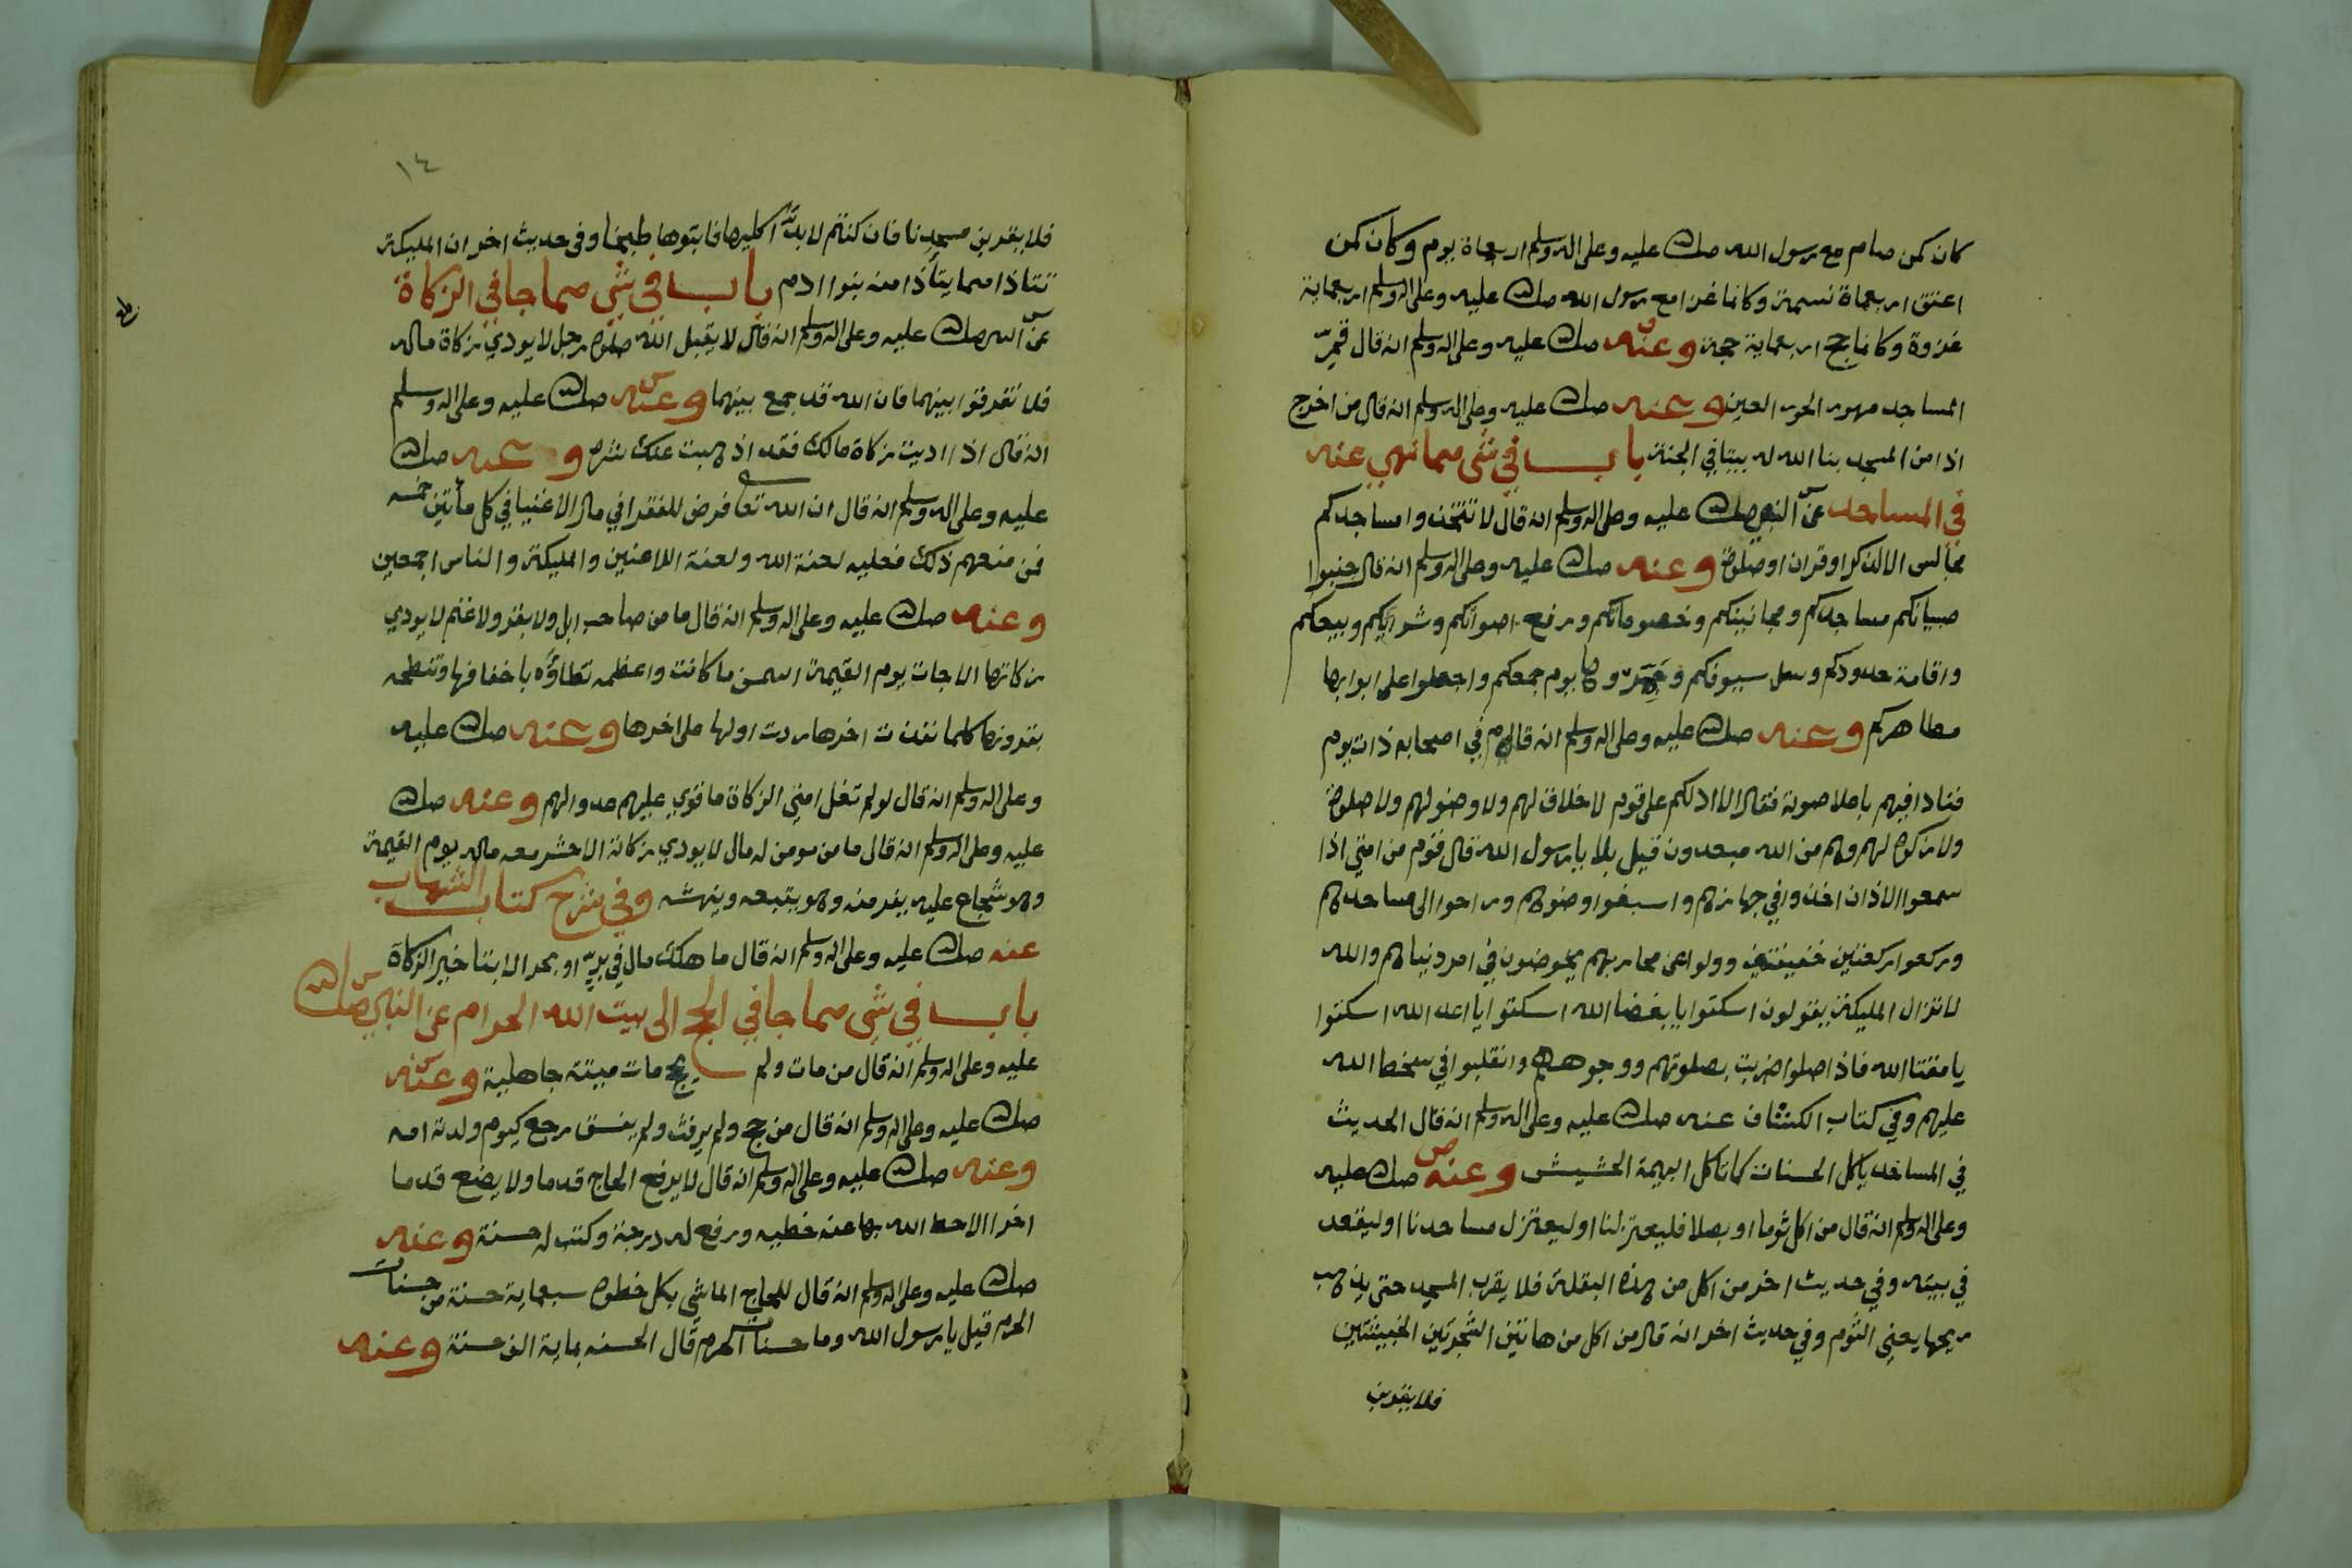 كان كمن صام مع رسول الله صلى الله عليه وعلى اله وسلم اربعماة يوم وكان كمن
اعتق اربعماة نسمة وكانما غزا مع رسول الله صلى الله عليه وعلى اله وسلم اربعماية
غزوة وكانما حج اربعماية حجة وعنه صلى الله عليه وعلى اله وسلم انه قال قمّ
المساجد مهور الحور العين وعنه صلى الله عليه وعلى اله وسلم انه قال من اخرج
اذا من المسجد بنا الله له بيتا في الجنة باب في شي مما نهي عنه
في المساجد عن النبي صلى الله عليه وعلى اله وسلم انه قال لا تتخذوا مساجدكم
مجالس الا لذكر او قران او صلوة وعنه صلى الله عليه وعلى اله وسلم انه قال جنبوا
صبيانكم مساجدكم ومجانينكم وخصوماتكم ورفع اصواتكم وشرايكم وبيعكم
واقامة حدودكم وسل سيوفكم وجمروها يوم جمعكم واجعلوا على ابوابها
مطاهركم وعنه صلى الله عليه وعلى اله وسلم انه قام في اصحابه ذات يوم
فنادا فيهم باعلا صوته فقال الا ادلكم على قوم لا خلاق لهم ولا وضو لهم ولا صلوة
ولا زكوة لهم وهم من الله مبعدون قيل بلا يا رسول الله قال قوم من امتي اذا
سمعوا الاذان اخذوا في جهازهم واسبغوا وضوهم وراحوا الى مساجدهم
وركعوا ركعتين خفيفتين وولوا عن محاريبهم يخوضون في امر دنياهم والله
لا تزال المليكة يقولون اسكتوا يا بغضا الله اسكتوا يا اعدا الله اسكتوا
يا مقتا الله فاذا صلوا ضربت بصلوتهم وجوههم وانقلبوا في سخط الله
عليهم وفي كتاب الكشاف عنه صلى الله عليه وعلى اله وسلم انه قال الحديث
في المساجد ياكل الحسنات كما تاكل البهيمة الحشيش وعنه صلى الله عليه
وعلى اله وسلم انه قال من اكل ثوما او بصلا فليعتزلنا او ليعتزل مساجدنا او ليقعد
في بيته وفي حديث اخر من اكل من هذه البقلة فلا يقرب المسجد حتى يذهب
ريحها يعني الثوم وفي حديث اخر انه قال من اكل من هاتين الشجرتين الخبيثتين
فلا يقربن
١٤
فلا يقربن مسجدنا فان كنتم لا بد اكليها فابتوها طبخا وفي حديث اخر ان المليكة
تتاذا مما يتأذا منه بنوا ادم باب في شي مما جا في الزكاة
عن النبي صلى الله عليه وعلى اله وسلم انه قال لا يقبل الله صلوة رجل لا يودي زكاة ماله
فلا تفرقوا بينهما فان الله قد جمع بينهما وعنه صلى الله عليه وعلى اله وسلم
انه قال اذا اديت زكاة مالك فقد اذهبت عنك شره وعنه صلى الله
عليه وعلى اله وسلم انه قال ان الله تعا فرض للفقرا في مال الاغنيا في كل مأتين خمسه
فمن منعهم ذلك فعليه لعنة الله ولعنة اللاعنين والمليكة والناس اجمعين
وعنه صلى الله عليه وعلى اله وسلم انه قال ما من صاحب ابل ولا بقر ولا غنم لا يودي
زكاتها الا جات يوم القيمة اسمن ما كانت واعظمه تطاؤه باخفافها وتنطحه
بقرونها كلما نفذت اخرها ردت اولها على اخرها وعنه صلى الله عليه
وعلى اله وسلم انه قال لو لم تغل امتي الزكاة ما قوي عليهم عدو الهم وعنه صلى الله
عليه وعلى اله وسلم انه قال ما من مومن له مال لا يودي زكاته الا حشر معه ماله يوم القيمة
وهو شجاع عليه يفر منه وهو يتبعه وينهشه وفي شرح كتاب الشهاب
عنه صلى الله عليه وعلى اله وسلم انه قال ما هلك مال في برّ او بحر الا بتاخير الزكاة
باب في شي مما جا في الحج الى بيت الله الحرام عن النبي صلى الله
عليه وعلى اله وسلم انه قال من مات ولم يحج مات ميتة جاهلية وعنه
صلى الله عليه وعلى اله وسلم انه قال من حج ولم يرفث ولم يفسق رجع كيوم ولدته امه
وعنه صلى الله عليه وعلى اله وسلم انه قال لا يرفع الحاج قدما ولا يضع قدما
اخرا الا حط الله بها عنه خطيه ورفع له درجة وكتب له حسنة وعنه
صلى الله عليه وعلى اله وسلم انه قال للحاج الماشي بكل خطوة سبعماية حسنة من حسنات
الحرم قيل يا رسول الله وما حسنات الحرم قال الحسنه بماية الف حسنة وعنه